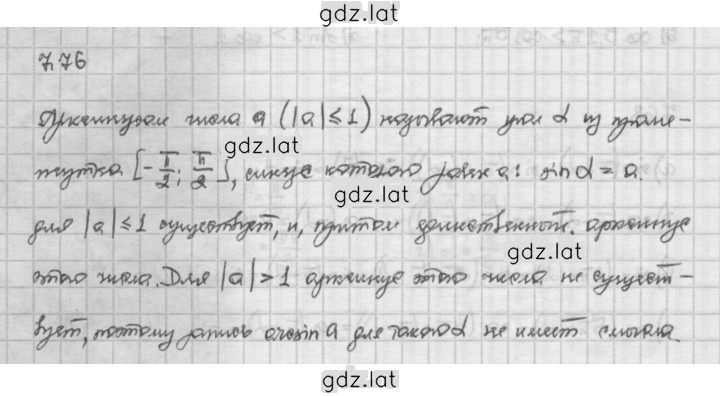 gdz.lat
7.76
Арксинусом числа a (|a| ≤ 1) называют угол α из проме-
gdz.lat
жутка [-π/2; π/2], синус которого равен a: sin α = a.
gdz.lat
Для |a| ≤ 1 существует, и, притом единственный. арксинус
gdz.lat
этого числа. Для |a| > 1 арксинус этого числа не сущест-
вует, поэтому запись arcsin a для такого α не имеет смысла.
gdz.lat